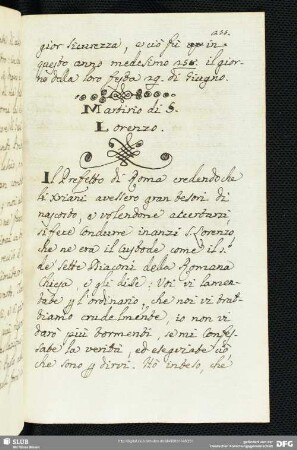 255.
gior sicurezza, e ciò fù in
questo anno medesimo 258. il gior-
no della loro festa 29. di Giugno.
Martirio di S.
Lorenzo.
Il Prefetto di Roma credendo che
li Xriani avessero gran tesori di
nascosto, e volendone accertarsi,
si fece condurre inanzi S. Lorenzo,
che ne era il Custode come il p.º
de sette Diaconi della Romana
Chiesa, e gli disse: Voi vi lamen-
tate p l'ordinario, che noi vi trat-
tiamo crudelmente, io non vi
darò più tormenti, se mi confes-
sate la verità, ed eseguirate ciò
che sono p dirvi. Hò inteso, che
SLUB
Wir führen Wissen.
gefördert von der
DFG